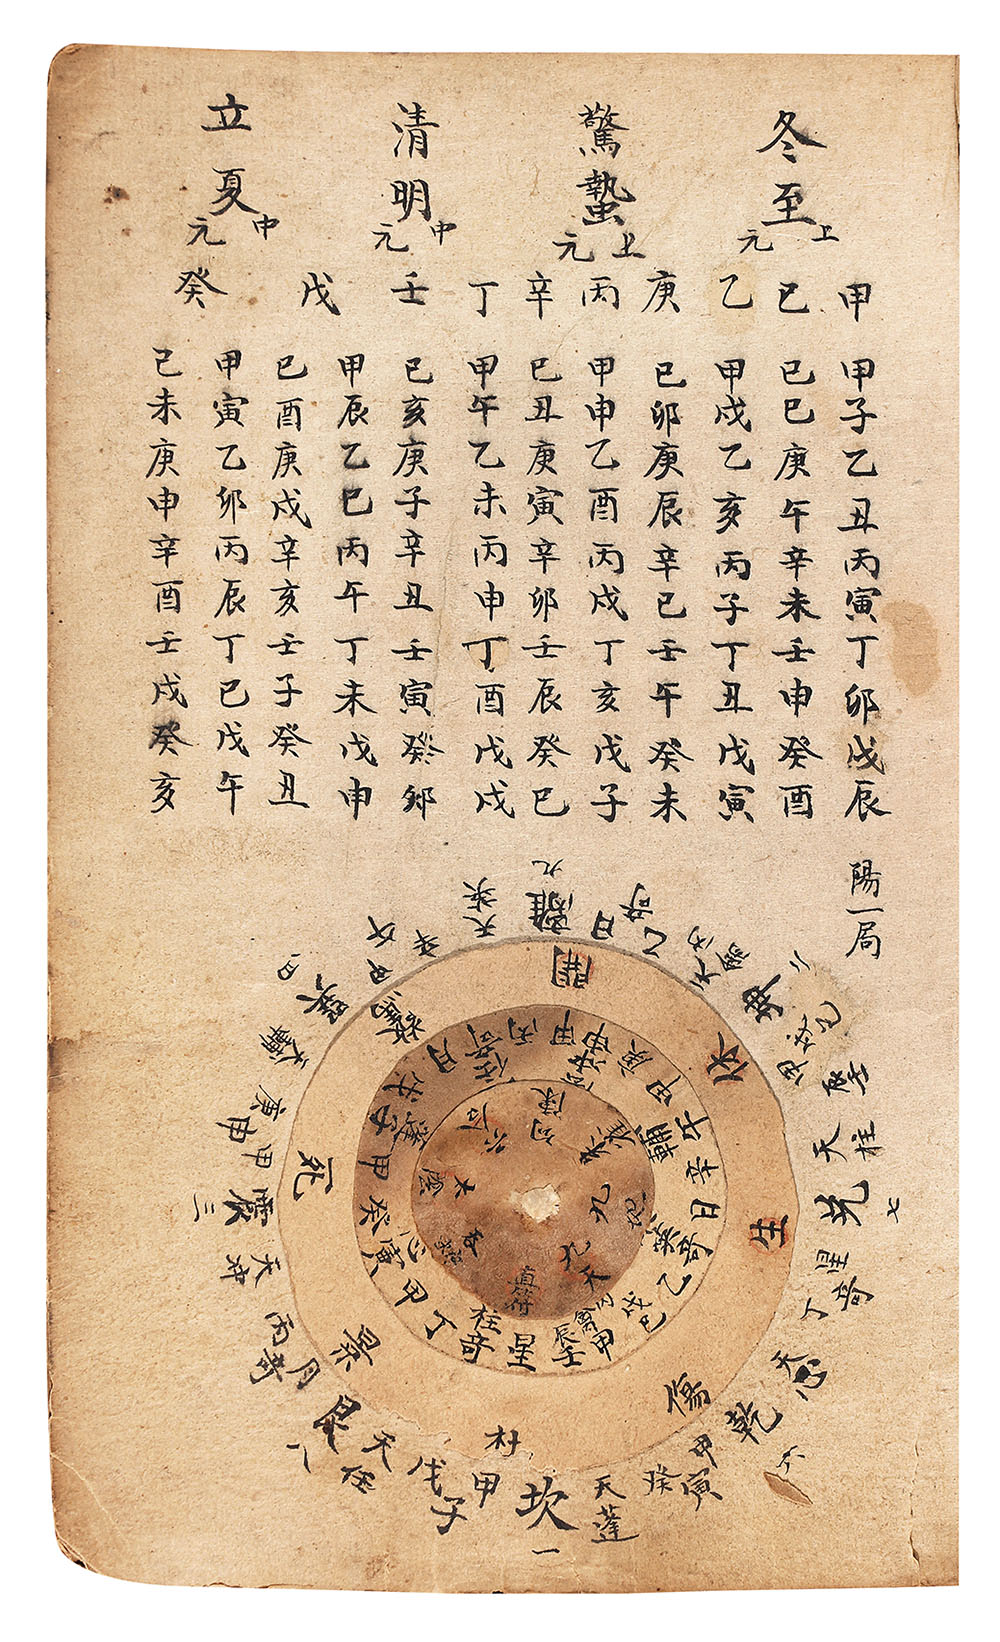 冬至
上元
驚蟄
上元
清明
中元
立夏
中元
甲
己
乙
庚
丙
辛
丁
壬
戊
癸
甲子乙丑丙寅丁卯戊辰
己巳庚午辛未壬申癸酉
甲戌乙亥丙子丁丑戊寅
己卯庚辰辛巳壬午癸未
甲申乙酉丙戌丁亥戊子
己丑庚寅辛卯壬辰癸巳
甲午乙未丙申丁酉戊戌
己亥庚子辛丑壬寅癸卯
甲辰乙巳丙午丁未戊申
己酉庚戌辛亥壬子癸丑
甲寅乙卯丙辰丁巳戊午
己未庚申辛酉壬戌癸亥
陽一局
離
九
日乙奇
天芮
坤
二
壬辰
天柱
兌
七
丁星奇
天心
乾
六
甲寅
癸
天蓬
坎
一
甲子
戊
天任
艮
八
丙月奇
天沖
震
三
甲申
庚
天輔
巽
四
甲戌
己
天英
開
休
生
傷
杜
景
死
驚
甲午
辛
輔
日奇
乙
英
戊
己
芮
禽
甲辰
壬
星奇
丁
柱
甲寅
癸
心
甲子
蓬
月奇
丙
任
甲申
庚
沖
直符
九天
九地
朱雀
勾陳
六合
太陰